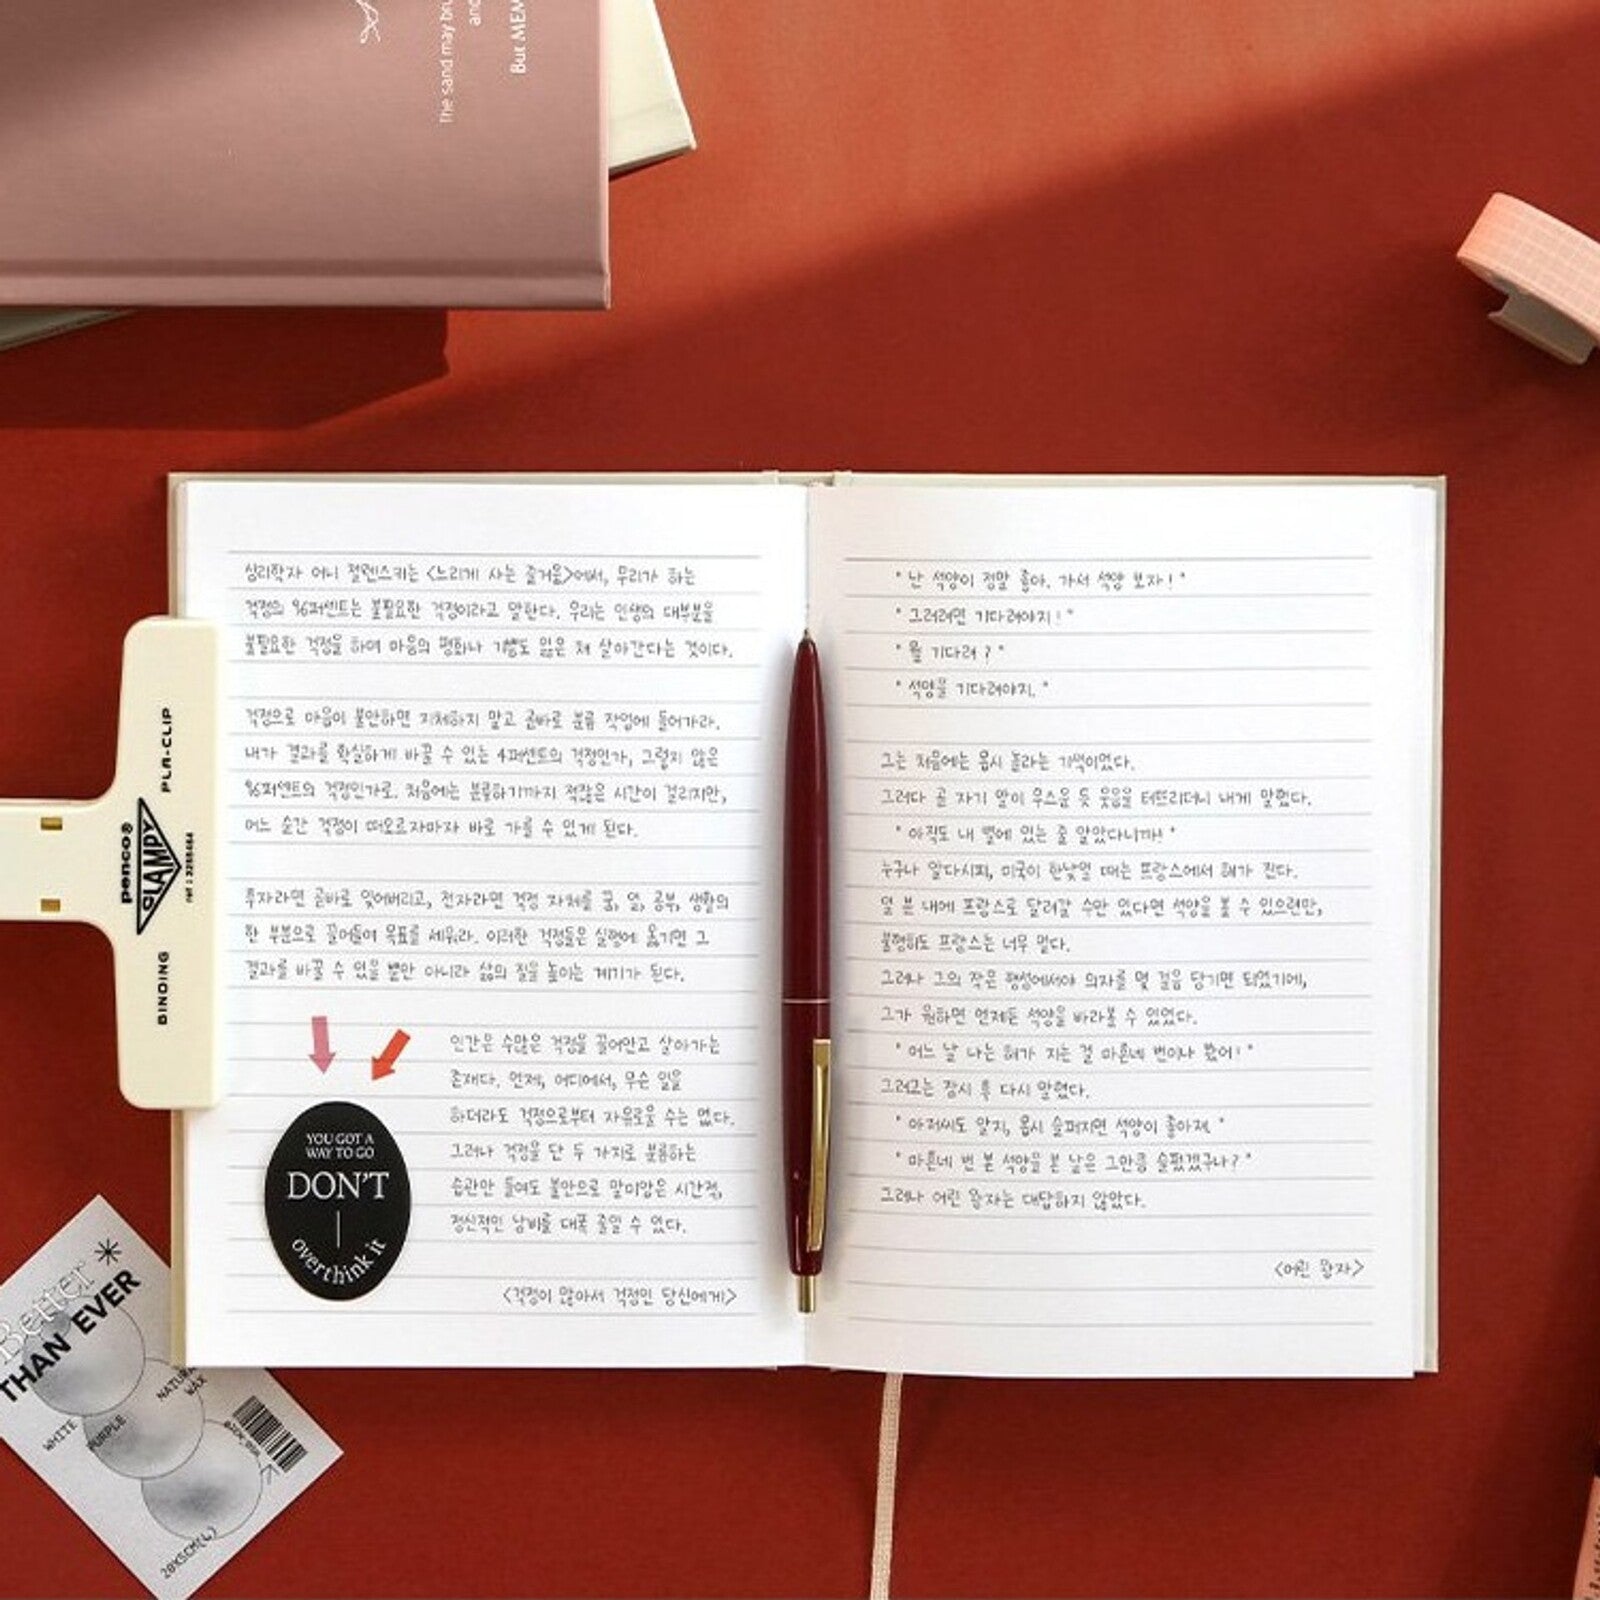 The sand may bru
and
But MEM
심리학자 어니 젤렌스키는 <느리게 사는 즐거움>에서, 우리가 하는
걱정의 96퍼센트는 불필요한 걱정이라고 말한다. 우리는 인생의 대부분을
불필요한 걱정을 하며 마음의 평화나 기쁨도 잃은 채 살아간다는 것이다.
걱정으로 마음이 불안하면 지체하지 말고 곧바로 분류 작업에 들어가라.
내가 결과를 확실하게 바꿀 수 있는 4퍼센트의 걱정인가, 그렇지 않은
96퍼센트의 걱정인가로. 처음에는 분류하기까지 적잖은 시간이 걸리지만,
어느 순간 걱정이 떠오르자마자 바로 가를 수 있게 된다.
후자라면 곧바로 잊어버리고, 전자라면 걱정 자체를 꿈, 일, 공부, 생활의
한 부분으로 끌어들여 목표를 세워라. 이러한 걱정들은 실행에 옮기면 그
결과를 바꿀 수 있을 뿐만 아니라 삶의 질을 높이는 계기가 된다.
인간은 수많은 걱정을 끌어안고 살아가는
존재다. 언제, 어디에서, 무슨 일을
하더라도 걱정으로부터 자유로울 수는 없다.
그러나 걱정을 단 두 가지로 분류하는
습관만 들여도 불안으로 말미암은 시간적,
정신적인 낭비를 대폭 줄일 수 있다.
<걱정이 많아서 걱정인 당신에게>
YOU GOT A
WAY TO GO
DON'T
overthink it
"난 석양이 정말 좋아. 가서 석양 보자!"
"그러려면 기다려야지!"
"뭘 기다려?"
"석양을 기다려야지."
그는 처음에는 몹시 놀라는 기색이었다.
그러다 곧 자기 말이 우스운 듯 웃음을 터뜨리더니 내게 말했다.
"아직도 내 별에 있는 줄 알았다니까!"
누구나 알다시피, 미국이 한낮일 때는 프랑스에서 해가 진다.
일 분 내에 프랑스로 달려갈 수만 있다면 석양을 볼 수 있으련만,
불행히도 프랑스는 너무 멀다.
그러나 그의 작은 행성에서야 의자를 몇 걸음 당기면 되었기에,
그가 원하면 언제든 석양을 바라볼 수 있었다.
"어느 날 나는 해가 지는 걸 마흔네 번이나 봤어!"
그러고는 잠시 후 다시 말했다.
"아저씨도 알지, 몹시 슬퍼지면 석양이 좋아져."
"마흔네 번 본 석양을 본 날은 그만큼 슬펐겠구나?"
그러나 어린 왕자는 대답하지 않았다.
<어린 왕자>
PLA-CLIP
penco®
SLAMPY
ref : 3255464
BINDING
Better
THAN EVER
NATURA
WAX
WHITE
PURPLE